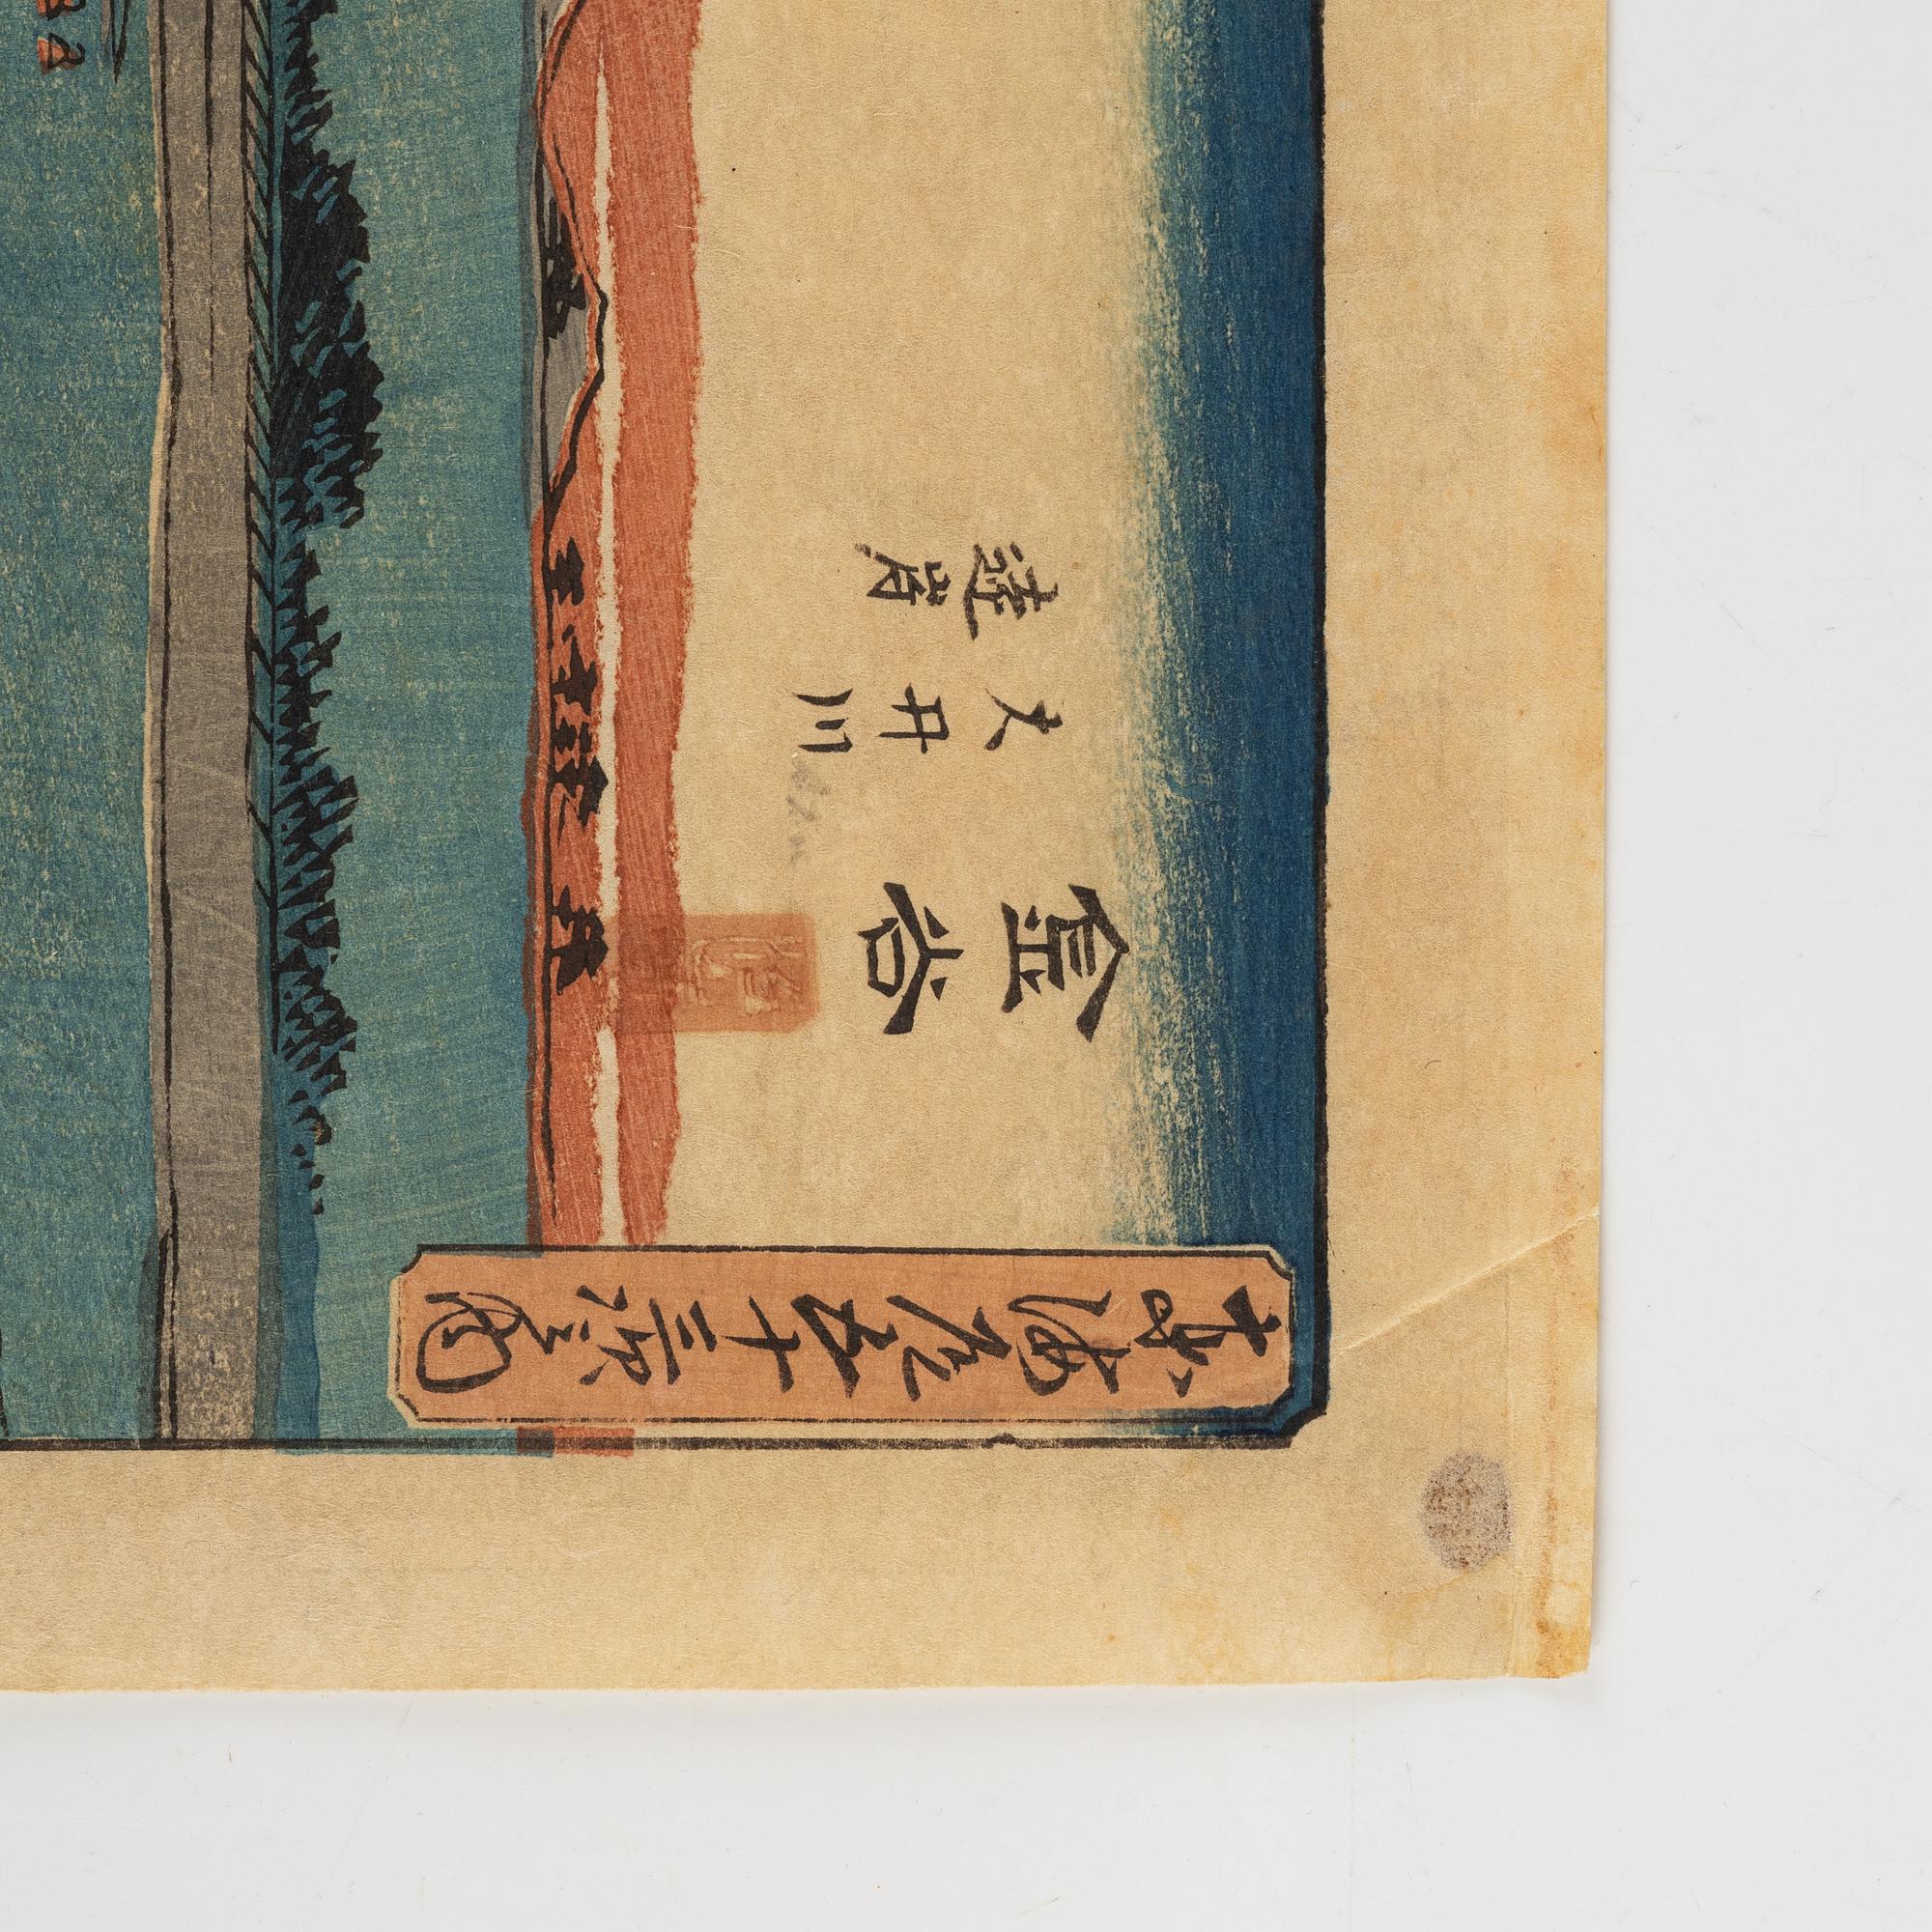 東海道五十三次之内
金谷
大井川
遠岸